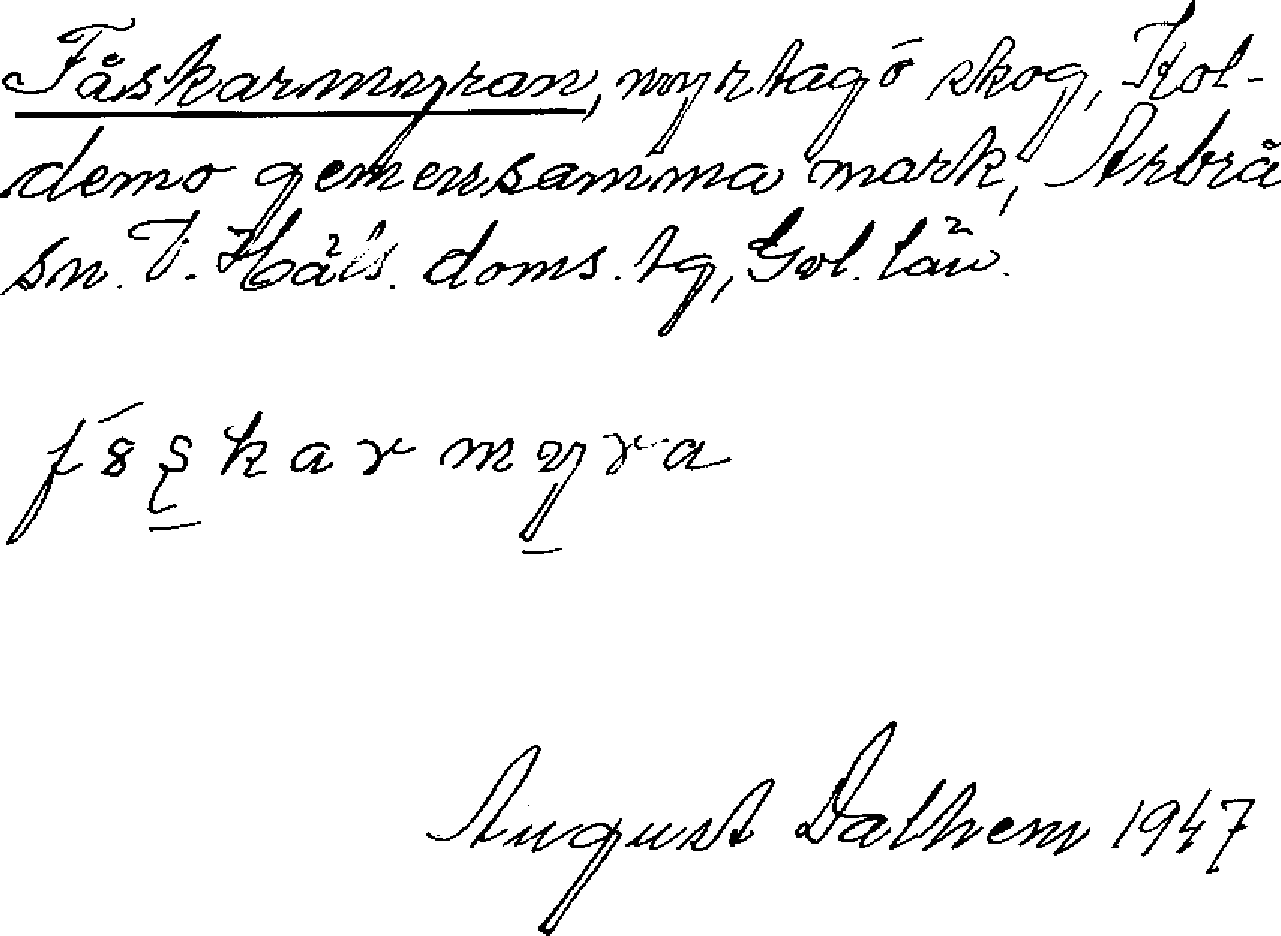 Fåskarmyran, myrtag å skog, Kol-
demo gemensamma mark, Arbrå
sn. V. Häls. doms. tg, Gvl. län.
August Dalhem 1947